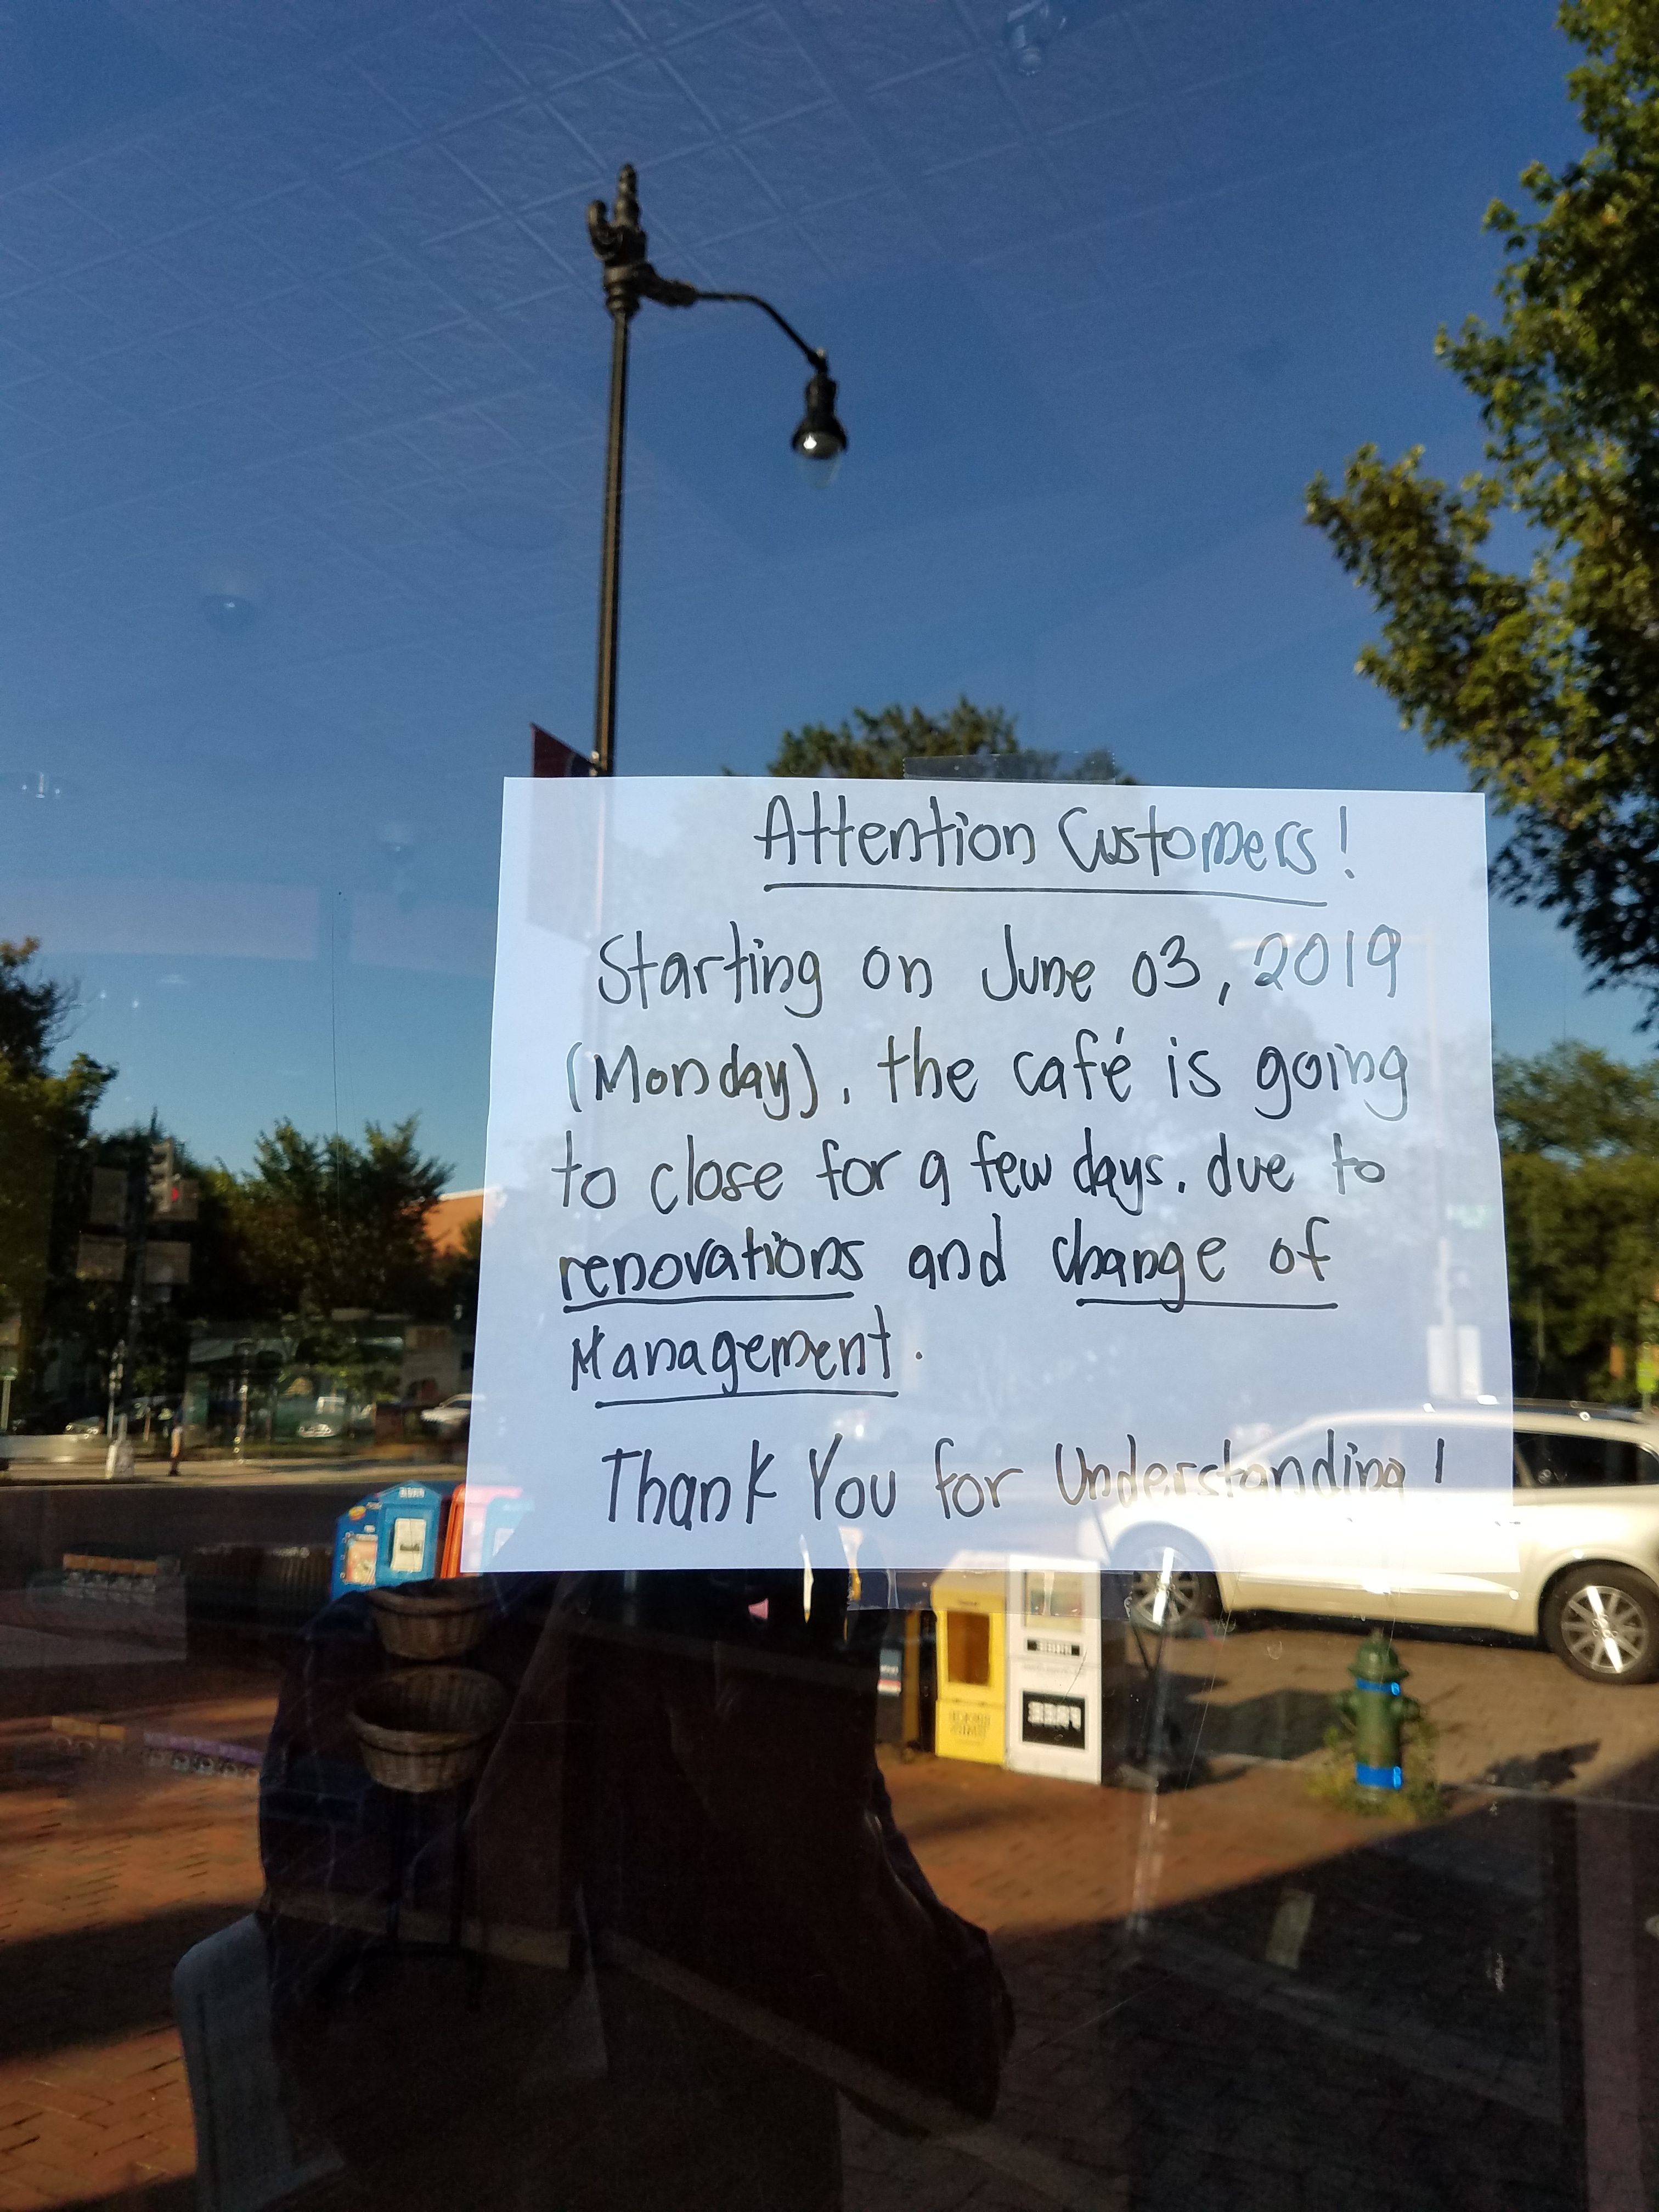 Attention Customers!
Starting on June 03, 2019
(Monday), the café is going
to close for a few days. due to
renovations and change of
Management.
Thank You for Understanding!
FREE